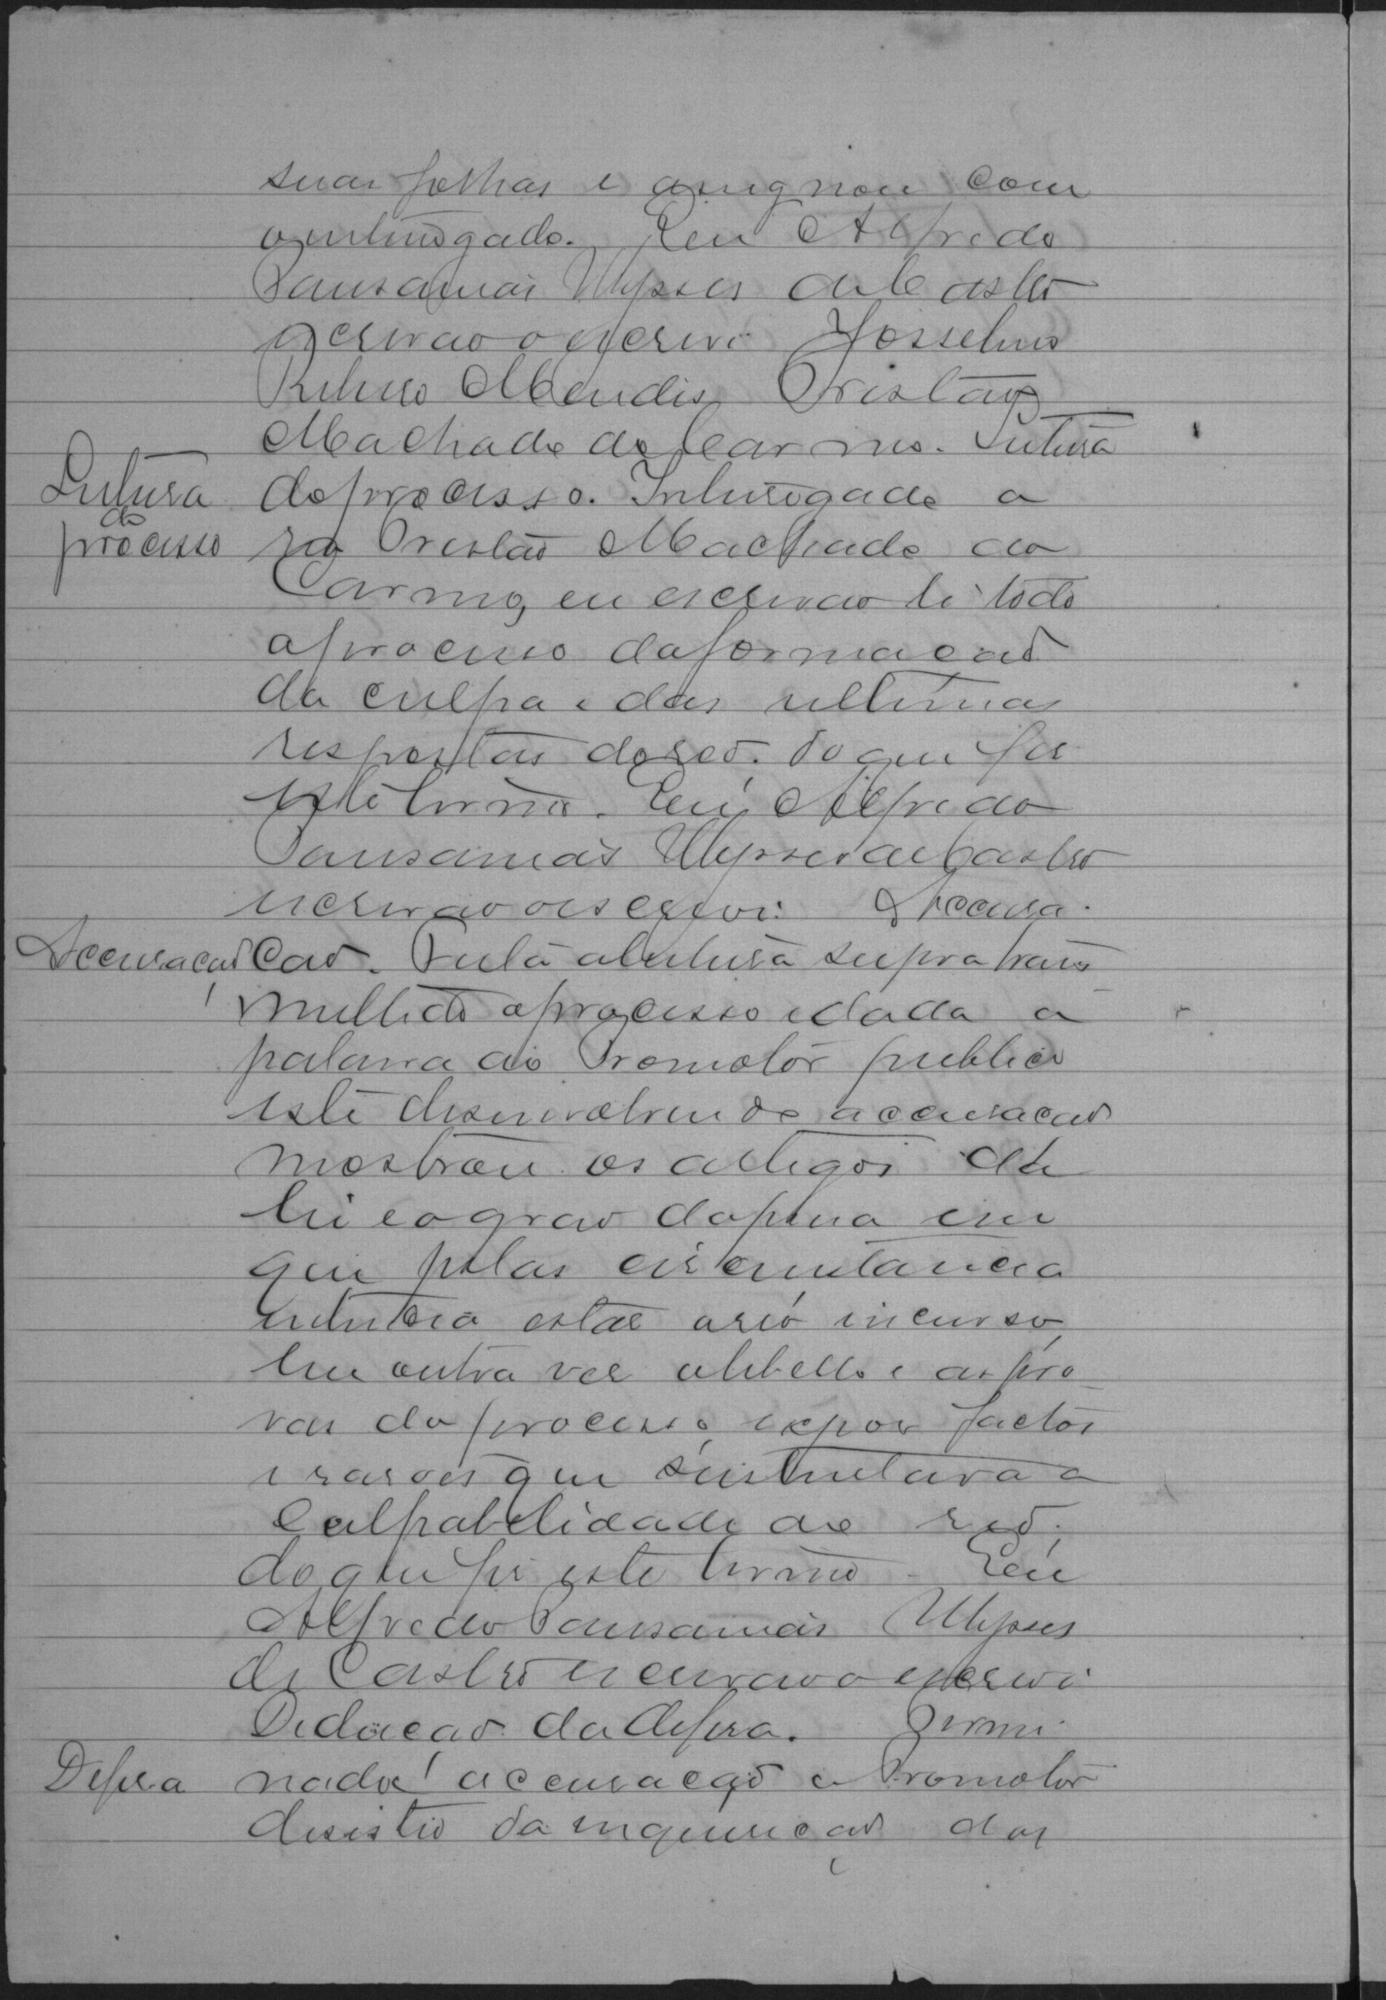 suas folhas e assignou com
o interrogado. Eu Alfredo
Pausanias Ulysses de Castro
escrivao o escrevi. Josselino
Ribeiro Mendis, Tristão
Machado do Carmo. Leitura
Leitura do processo
do processo. Interrogado a
reo Tristão Machado do
Carmo, eu escrivao li todo
o processo da formacaõ
da culpa e das ultimas
respostas do reo. do que fis
este termo. Eu, Alfredo
Pausanias Ulysses de Castro
escrivao o escrevi. Accusa-
Accusaçaõ
caõ. Feita a leitura supra trans
mettido o processo e dada a
palavra ao Promotor publico
este desenvolvendo a accusacaõ
mostrou os artigos da
lei e o grao da pena em
que pelas circunstancia
entendia estar o reo incurso,
leu outra ves o libello e as pro
vas do processo, expos factos
e rasoes que sustentava a
culpabelidade do reo.
do que fis este termo. Eu
Alfredo Pausanias Ulysses
de Castro escrivao o escrevi.
Deducçaõ da defesa. Termi-
Defesa
nada a accusaçaõ o Promotor
desistio da inquiriçaõ das